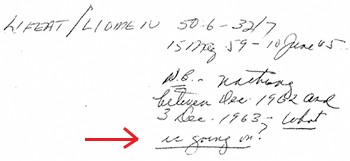 LIFEAT / LIOMEN 50-6-32/7
15 May 59 - 10 June 65
N.B. - Nothing
between Dec 1962 and
3 Dec. 1963 - What
is going on?